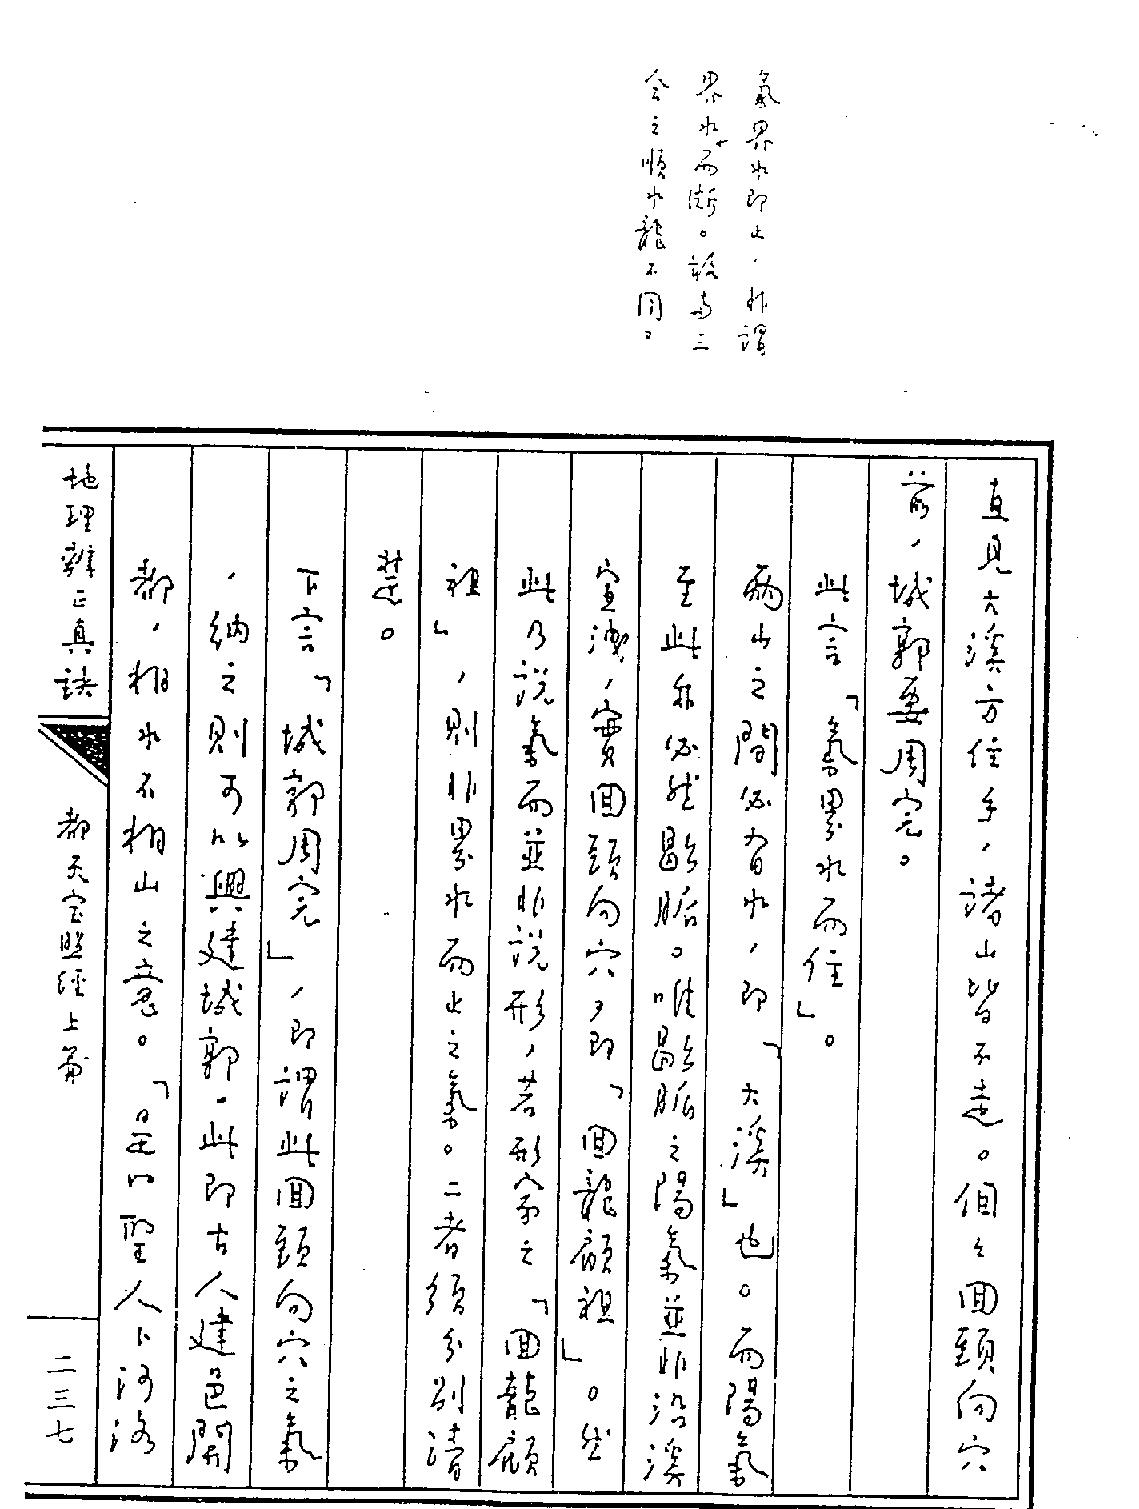 氣界水即止，非謂
界水而斷。故與三
合之順水龍不同。
直見大溪方住手，諸山皆不走。個々回頭向穴
前，城郭要周完。
此言「氣界水而住」。
兩山之間必有水，即「大溪」也。而陽氣
至此非必然歇脈。唯歇脈之陽氣並非沿溪
宣洩，實回頭向穴，即「回龍顧祖」。然
此乃說氣而並非說形，若形家之「回龍顧
祖」，則非界水而止之氣。二者須分別清
楚。
下言「城郭周完」，即謂此回頭向穴之氣
，納之則可以興建城郭，此即古人建邑開
都，相水不相山之意。「是以聖人卜河洛
地理辨正真訣
都天宝照經上篇
二三七